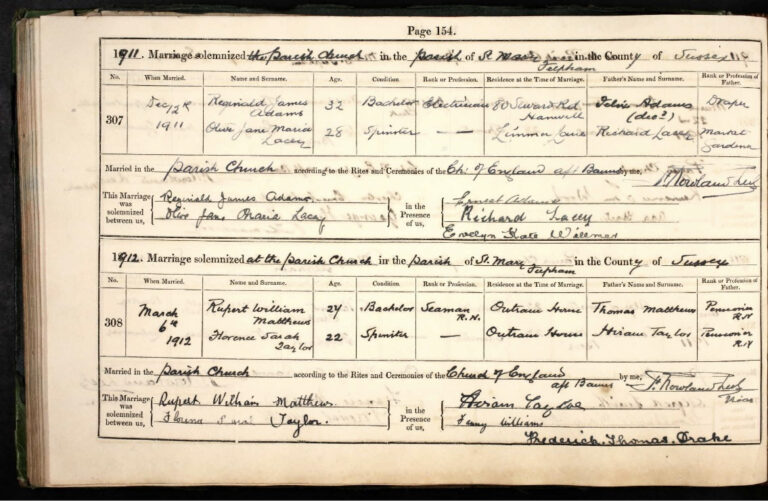 Page 154.
1911. Marriage solemnized at the Parish Church in the Parish of St. Mary Felpham in the County of Sussex
No. When Married. Name and Surname. Age. Condition. Rank or Profession. Residence at the Time of Marriage. Father's Name and Surname. Rank or Profession of Father.
307 Dec 12th 1911 Reginald James Adams 32 Bachelor Electrician 80 Seward Rd Hanwell Adams (decd) Draper
Olive Jane Maria Lacey 28 Spinster — — Limmer Lane Richard Lacey Market Gardener
Married in the Parish Church according to the Rites and Ceremonies of the Ch. of England aft Banns by me,
This Marriage was solemnized between us, Reginald James Adams in the Presence of us, Ernest Adams
Olive Jane Maria Lacey Richard Lacey
Evelyn Kate
1912. Marriage solemnized at the Parish Church in the Parish of St. Mary Felpham in the County of Sussex
No. When Married. Name and Surname. Age. Condition. Rank or Profession. Residence at the Time of Marriage. Father's Name and Surname. Rank or Profession of Father.
308 March 6th 1912 Rupert William Matthews 24 Bachelor Seaman R.N. Outram House Thomas Matthews Pensioner R.N
Florence Sarah Taylor 22 Spinster — Outram House Hiram Taylor Pensioner R.N
Married in the Parish Church according to the Rites and Ceremonies of the Church of England aft Banns by me, Vicar
This Marriage was solemnized between us, Rupert William Matthews in the Presence of us, Hiram Taylor
Florence Sarah Taylor. Fanny Williams
Frederick. Thomas. Drake